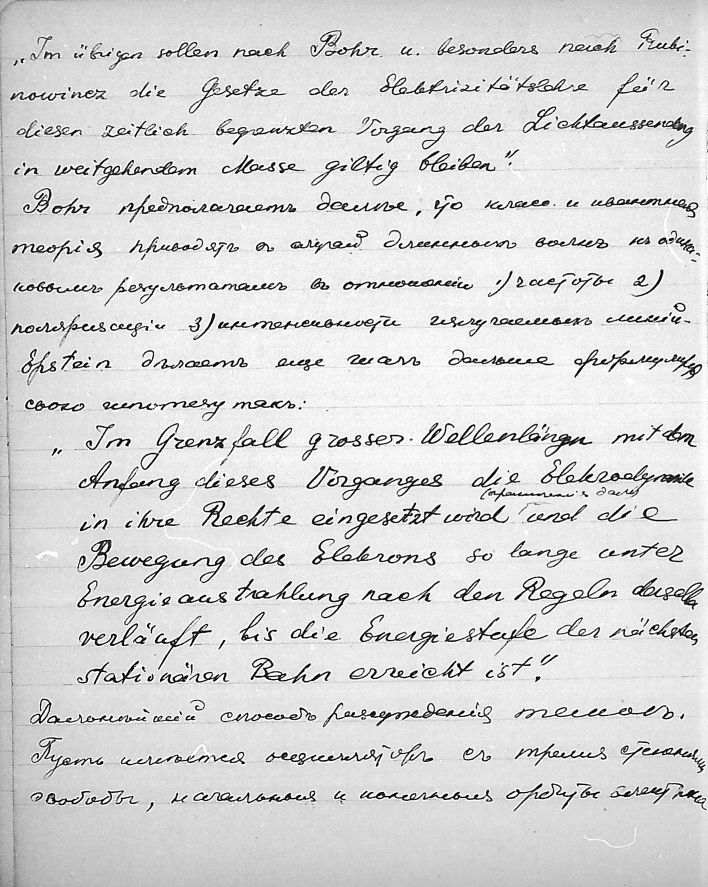 „Im übrigen sollen nach Bohr u. besonders nach Rubi-
nowincz die Gesetze der Elektrizitätslehre für
diesen zeitlich begrenzten Vorgang der Lichtaussendung
in weitgehendem Masse giltig bleiben".
Bohr предполагаетъ далѣе, что класс. и квантная
теорія приводятъ въ случаѣ длинныхъ волнъ къ одина-
ковымъ результатамъ въ отношеніи 1) частоты 2)
поляризаціи 3) интенсивности излучаемыхъ линій.
Epstein дѣлаетъ еще шагъ дальше формулируя
свою гипотезу такъ:
„Im Grenzfall grosser Wellenlängen mit dem
Anfang dieses Vorganges die Elektrodynamik
in ihre Rechte eingesetzt wird und die
Bewegung des Elektrons so lange unter
Energieaustrahlung nach den Regeln derselben
verläuft, bis die Energiestufe der nächsten
stationären Bahn erreicht ist".
Дальнѣйшій способъ разсужденія таковъ.
Пусть имѣется осцилляторъ съ тремя степенями
свободы, начальныя и конечныя орбиты электрона